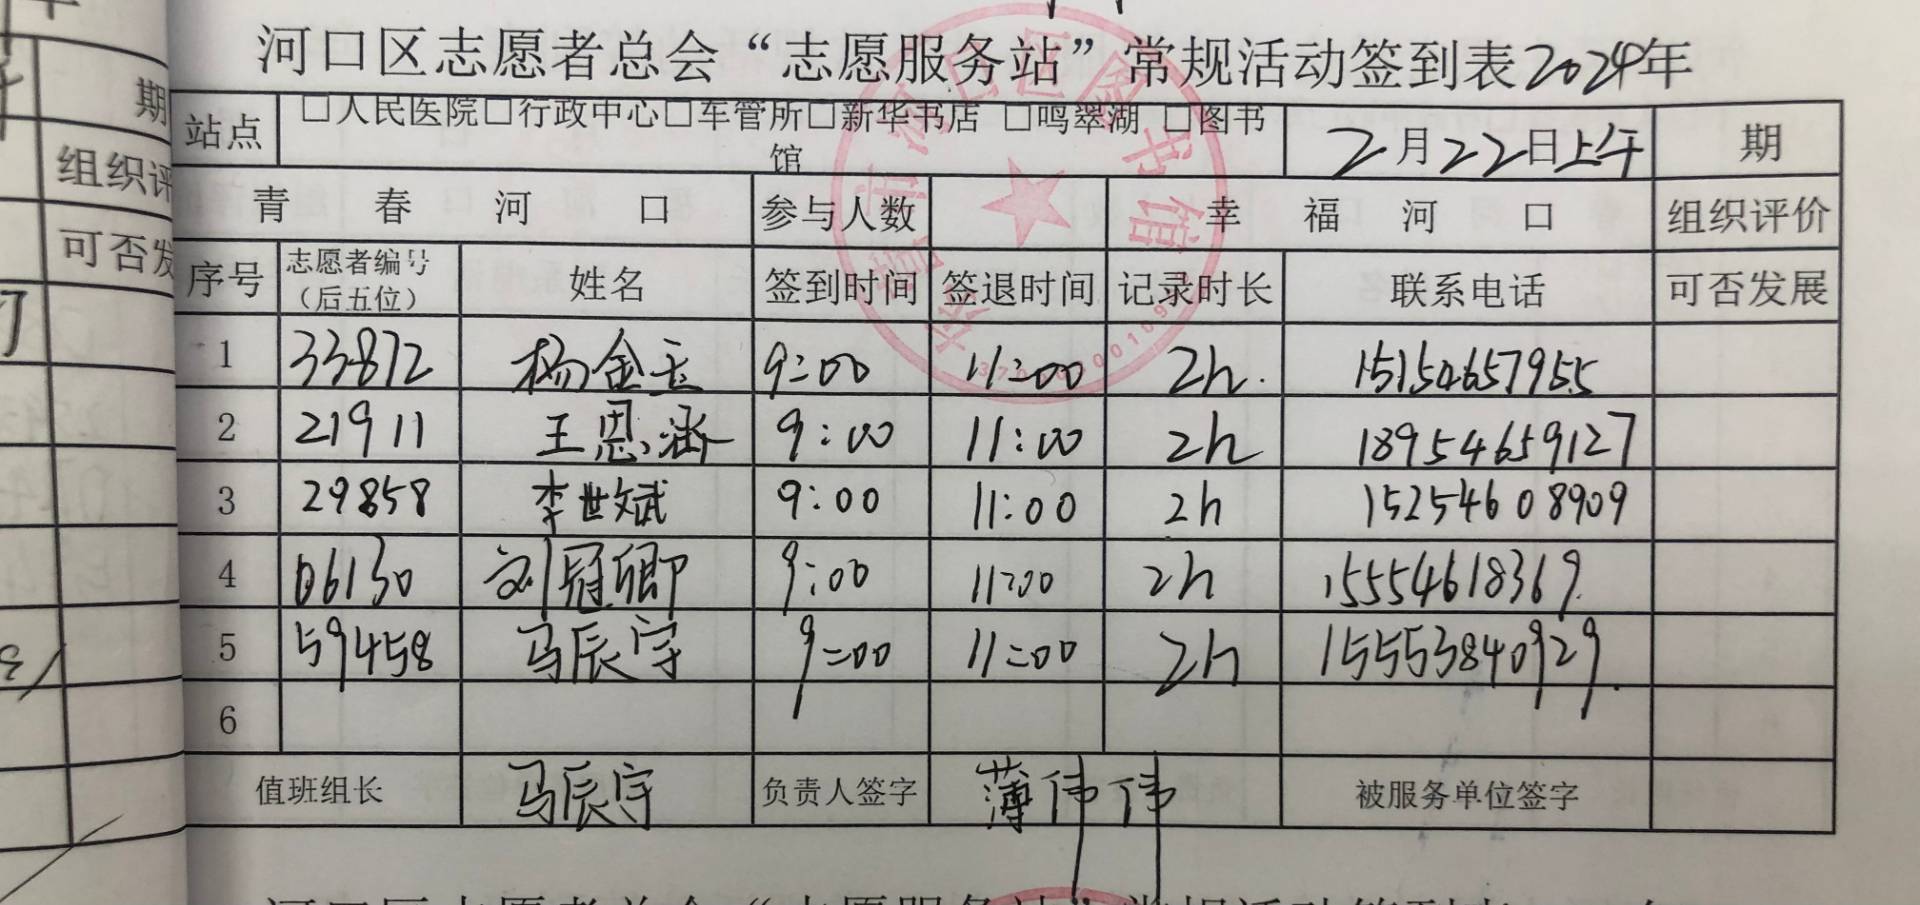 河口区志愿者总会“志愿服务站”常规活动签到表2024年
站点 □人民医院□行政中心□车管所□新华书店 □鸣翠湖 □图书馆 2月22日上午 期
青春河口 参与人数 幸福河口 组织评价
序号 志愿者编号（后五位） 姓名 签到时间 签退时间 记录时长 联系电话 可否发展
1 33872 杨金玉 9:00 11:00 2h. 15154657955
2 21911 王恩涵 9:00 11:00 2h 18954659127
3 29858 李世斌 9:00 11:00 2h 15254608909
4 06130 刘冠卿 9:00 11:00 2h 15554618369
5 59458 马辰宇 9:00 11:00 2h 15553840929
6
值班组长 马辰宇 负责人签字 薄伟伟 被服务单位签字
期
组织评
可否发
河口区图书馆
河口区志愿者总会“志愿服务站”常规活动签到表